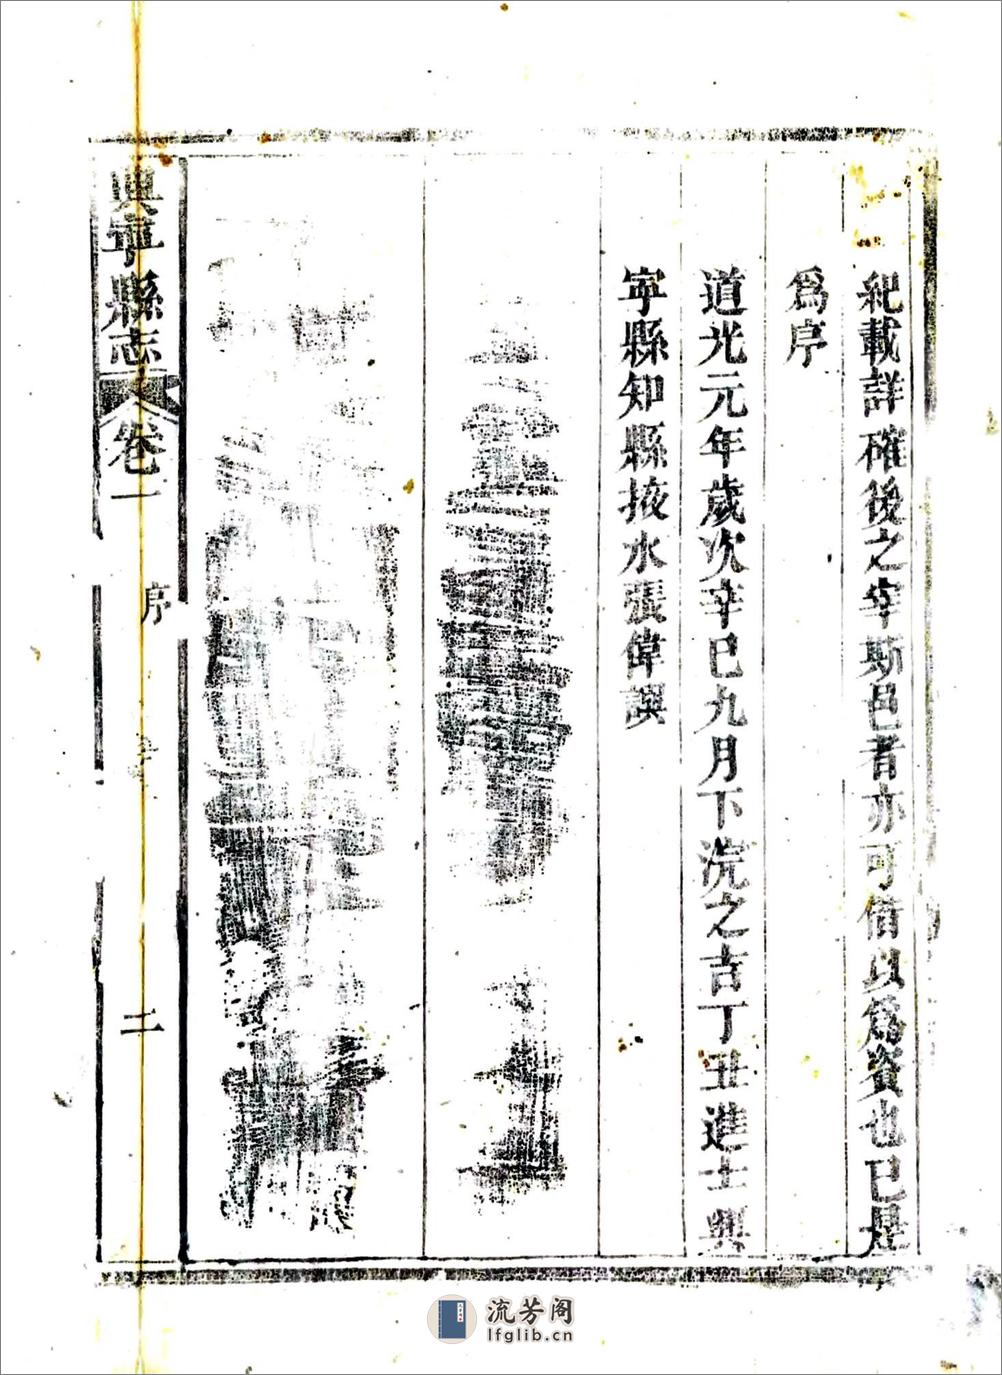 紀載詳確後之宰斯邑者亦可借以爲資也已是
爲序
道光元年歲次辛巳九月下浣之吉丁丑進士興
寧縣知縣掖水張偉譔
興寧縣志
卷一
序
二
流芳阁
lfglib.cn